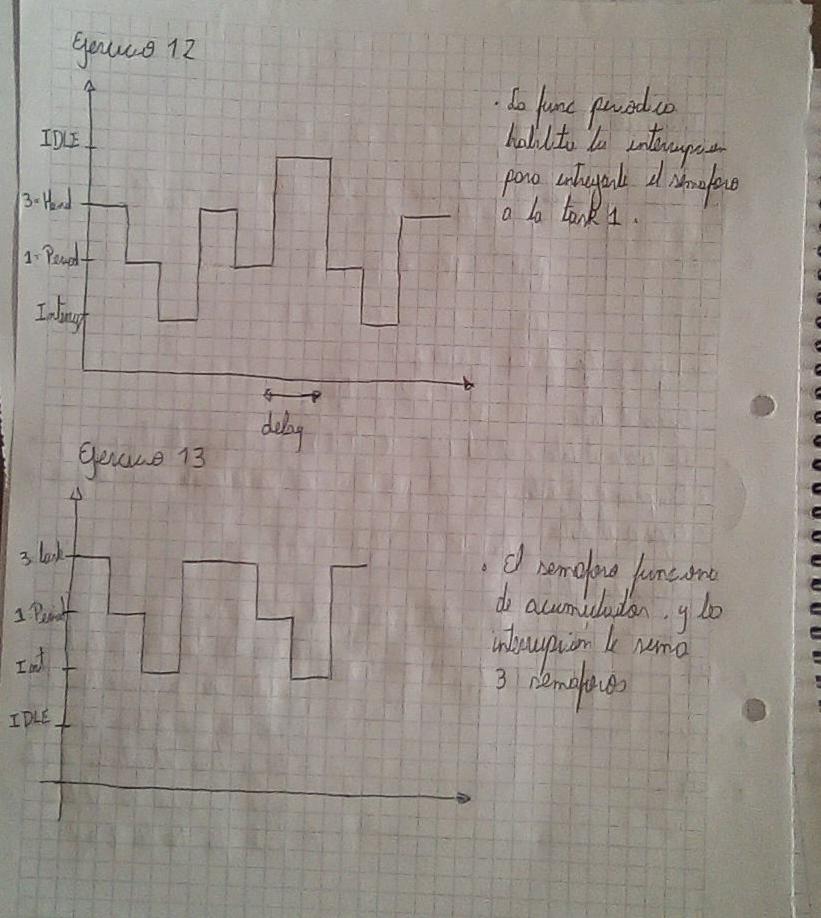 Ejercicio 12
IDLE
3-Hand
1-Period
Interrup
delay
. La func periodica
habilita la interrupcion
para entregarle el semaforo
a la task 1.
Ejercicio 13
3 task
1 Period
Int
IDLE
. El semaforo funciona
de acumulador. y la
interrupción le suma
3 semaforos